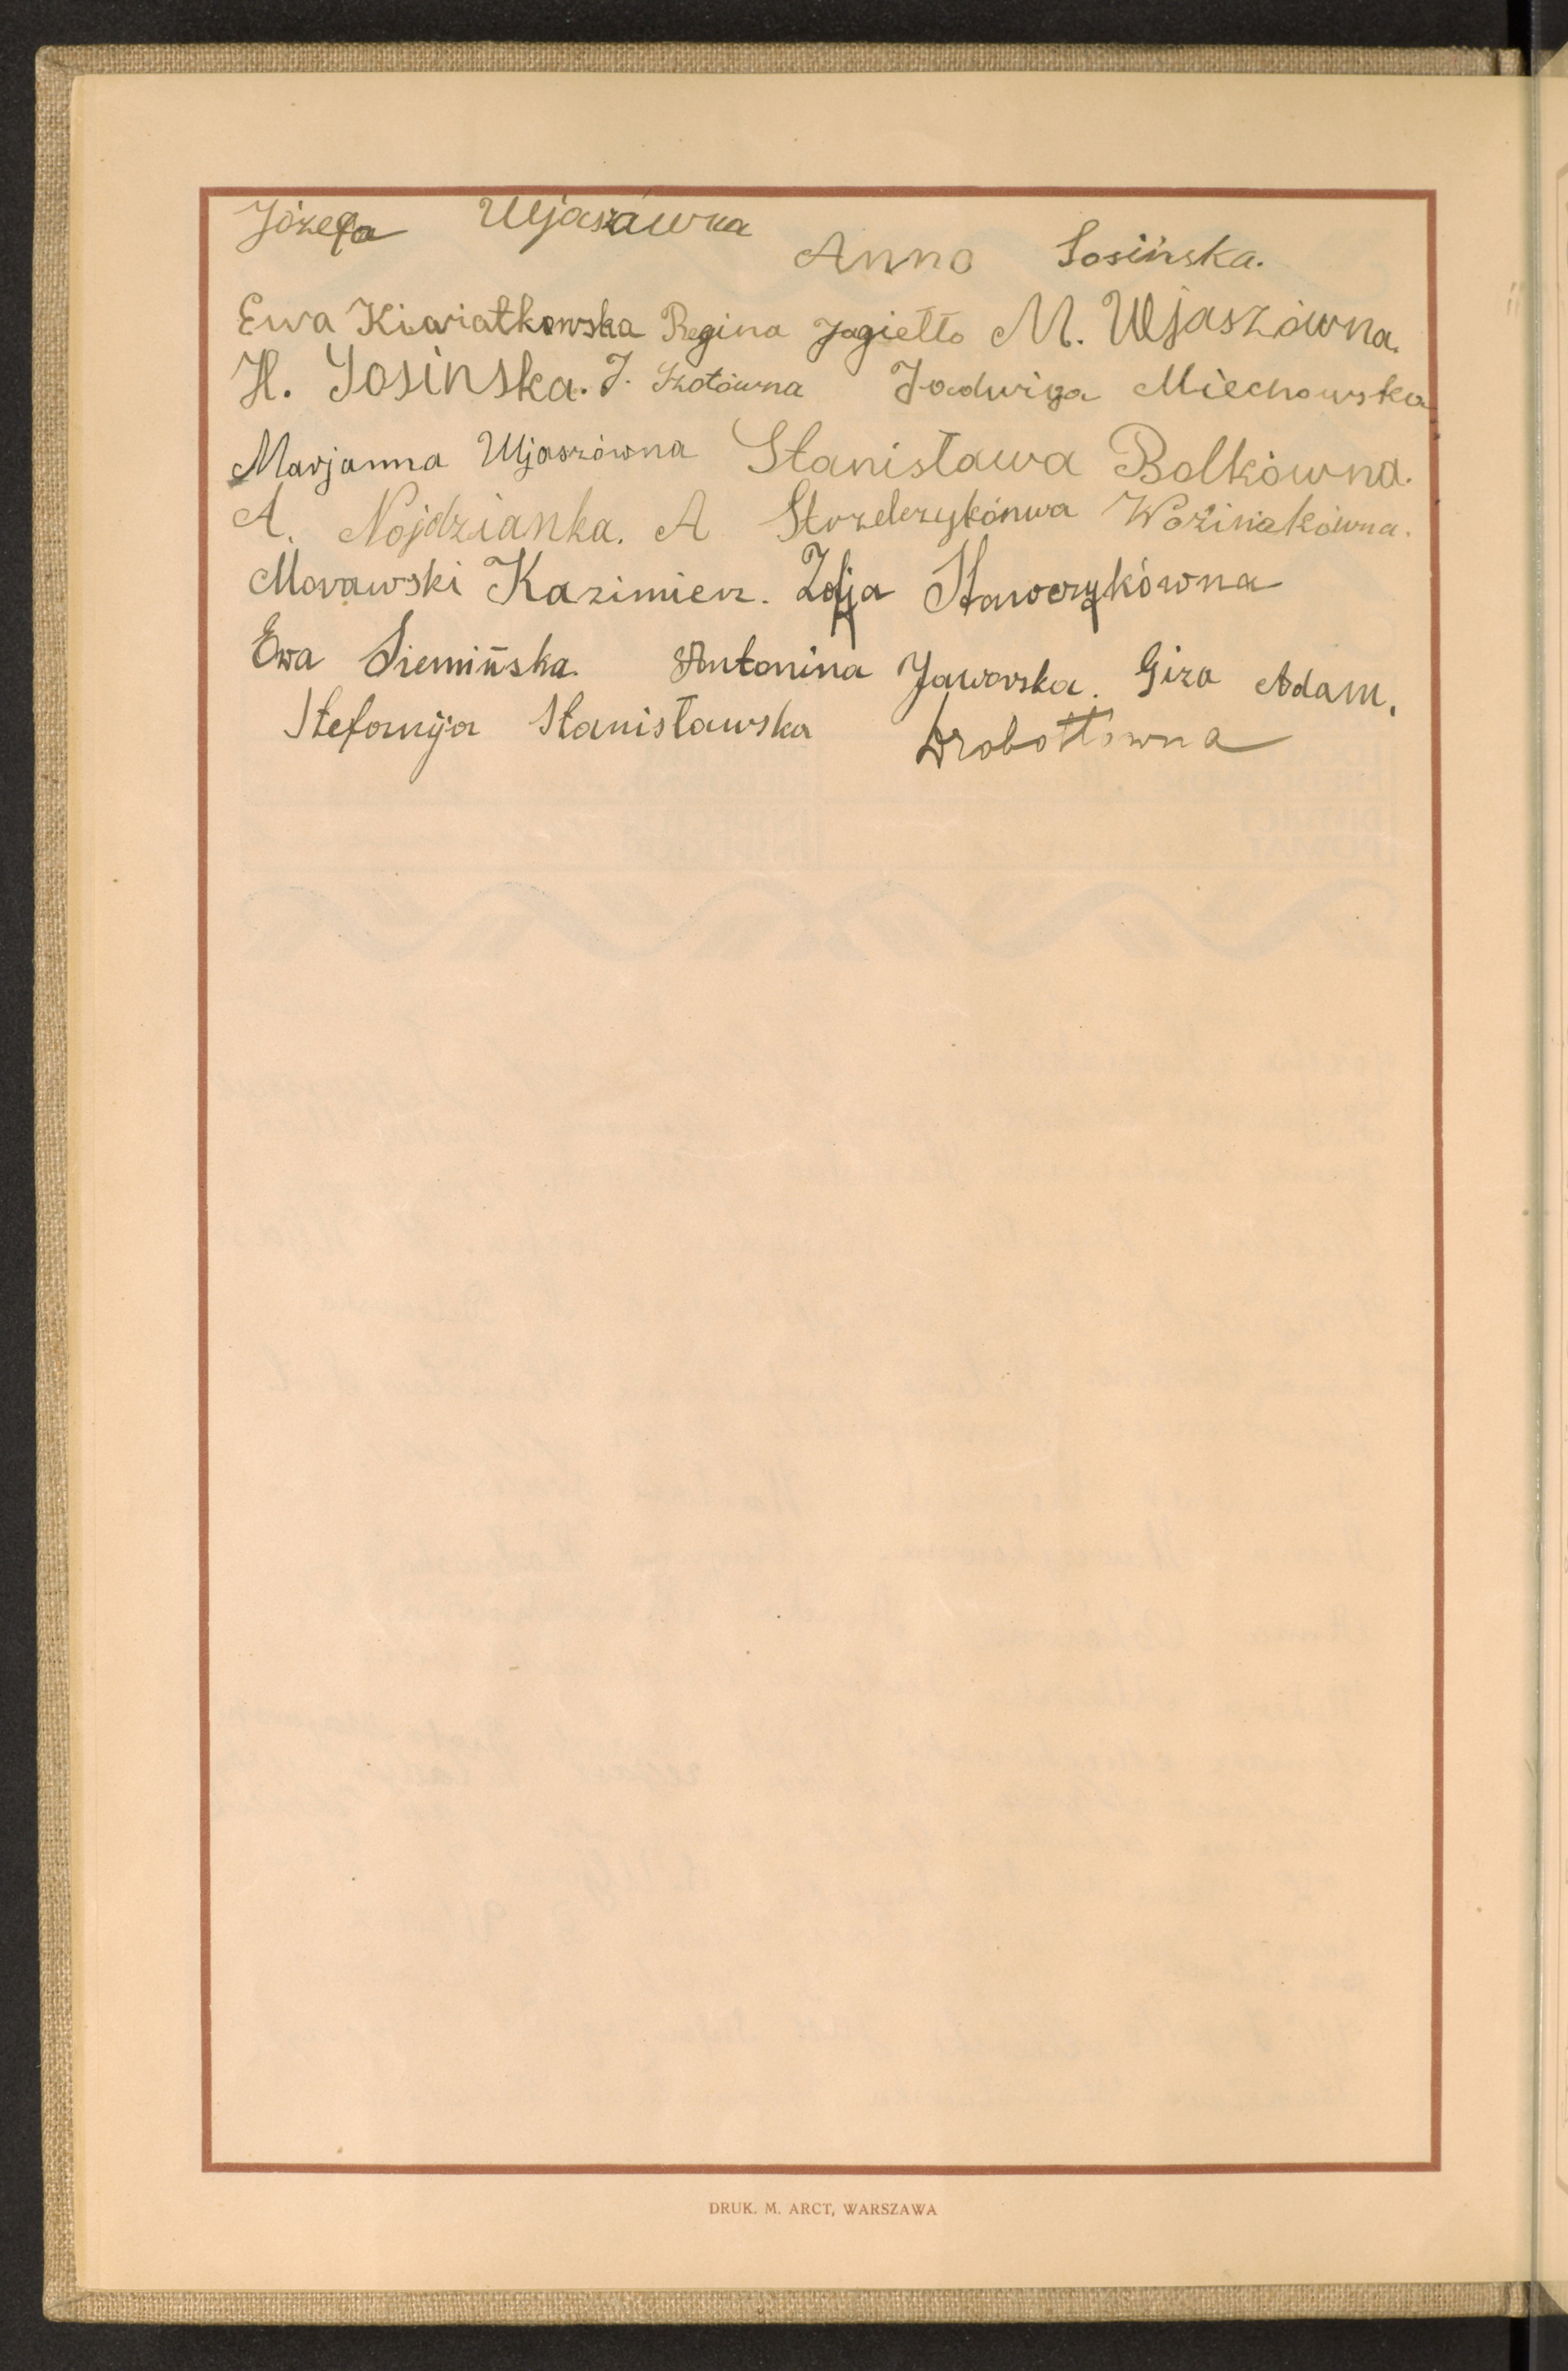 Józefa Ujaszówna
Anna Sosińska.
Ewa Kiwiatkowska Regina Jagiełło M. Ujaszówna.
H. Sosinska. J. Szotówna Jadwiga Miechowska
Marjanna Ujaszówna Stanisława Bolkówna.
A. Nojdzianka. A Strzelczykónwa Woźniakówna.
Morawski Kazimierz. Zofja Stawczykówna
Ewa Siemińska. Antonina Jaworska. Giza Adam.
Stefanija Stanisławska Drobotówna
DRUK. M. ARCT, WARSZAWA